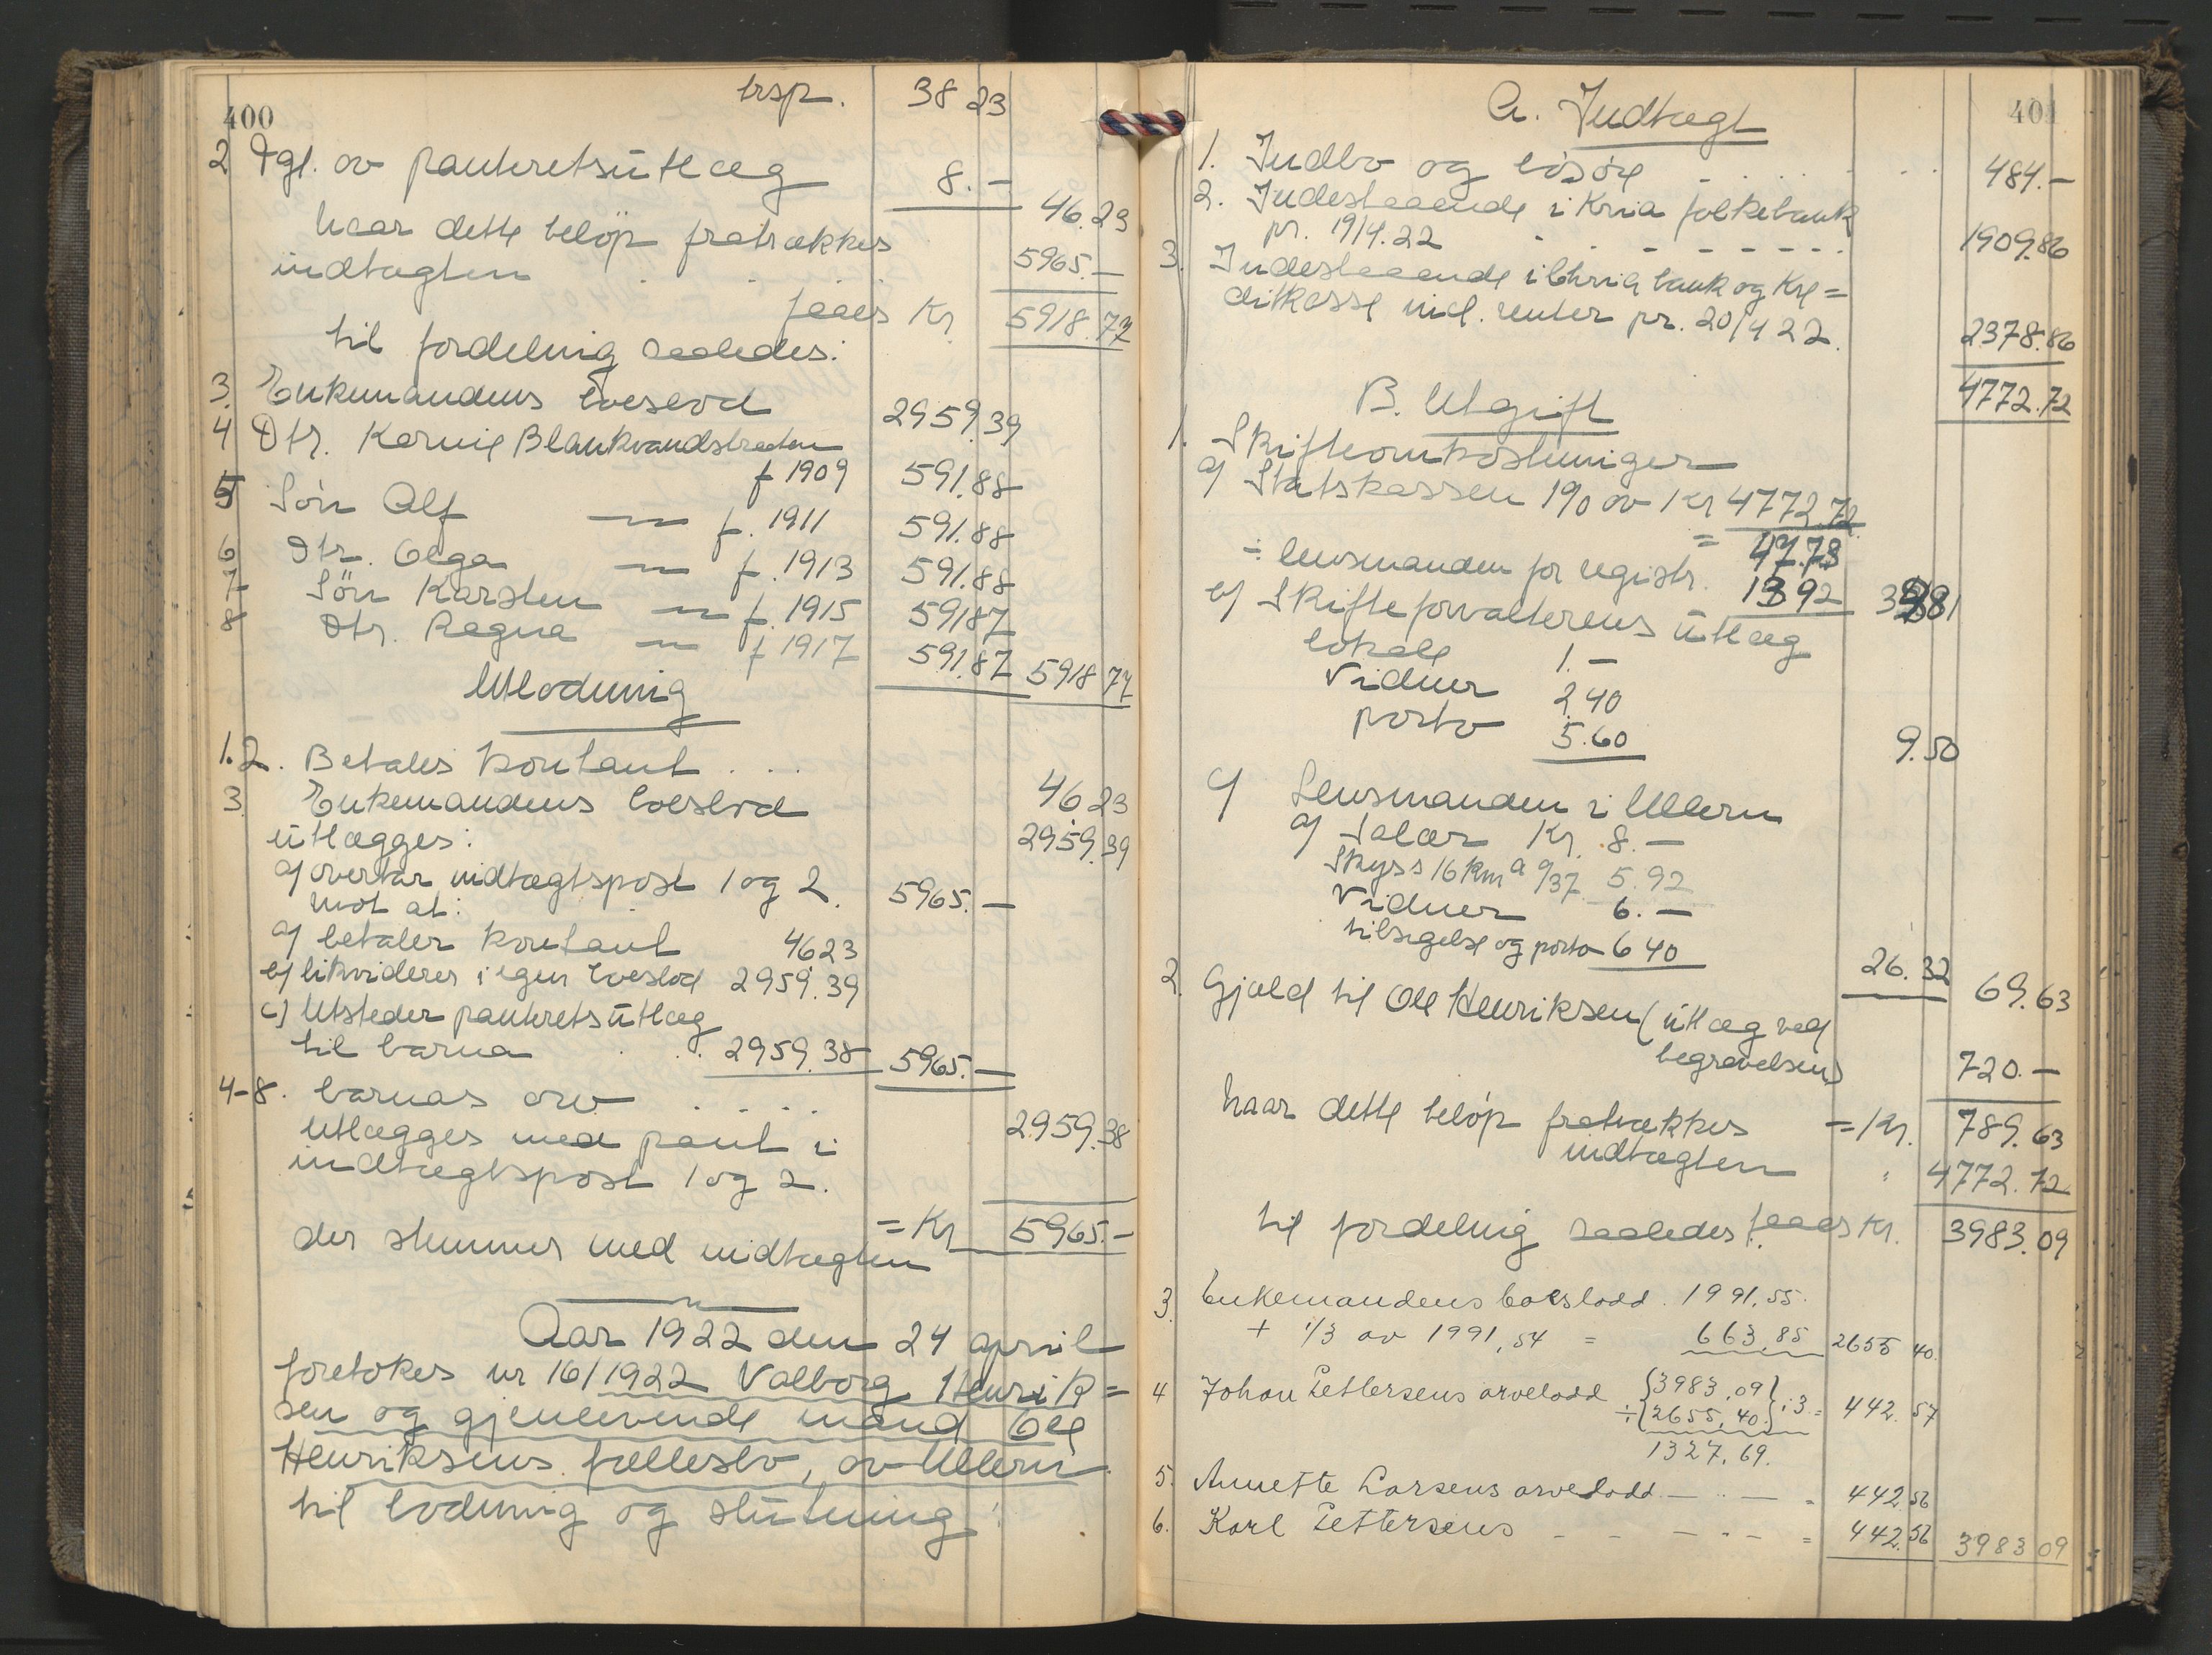 400
trsp. 38 23
2 Tgl. av panteretsutlæg 8.—
46.23
naar dette beløp fratrækkes
indtægten 5965.—
faaes Kr 5918.77
til fordeling saaledes:
3. Enkemandens boeslod 2959.39
4 Dtr. Karnie Blankvandsbraaten
f 1909 591.88
5 Søn Alf — " — f. 1911 591.88
6 Dtr. Olga — " — f. 1913 591.88
7 Søn Karsten — " — f. 1915 591 87
8 Dtr. Ragna — " — f 1917 591.87 5918 77
Utlodning
1.2. Betales kontant . . . 46 23
3. Enkemandens boeslod 2959.39
utlægges:
a) overtar indtægtspost 1 og 2. 5965.—
mot at:
a) betaler kontant 46 23
b) likviderer i egen boeslod 2959.39
c) Utsteder panteretsutlæg
til barna . . . 2959.38 5965.—
4-8. barnas arv . . . . 2959.38
utlægges med pant i
indtægtspost 1 og 2.
= Kr 5965.—
der stemmer med indtægten
Aar 1922 den 24 april
foretokes nr 16/1922 Valborg Henrik=
sen og gjenlevende mand Ole
Henriksens fællesbo, av Ullern
til lodning og slutning:
401
A. Indtægt
1. Indbo og løsøre . . . . . 484.—
2. Indestaaende i Kria folkebank
pr. 19/4.22 - - - - - - - 1909.86
3. Indestaaende i Chria bank og Kre=
ditkasse incl. renter pr. 20/4 22. 2378.86
4772.72
B. Utgift
1. Skifteomkostninger
a) Statskassen 1% av Kr 4772.72
= 47.73
÷ lensmanden for registr. 13 92 33 81
b) Skifteforvalterens utlæg
lokale 1.—
vidner 2.40
porto 5.60
9.50
c) Lensmanden i Ullern
a) Salær Kr. 8.—
Skyss 16 km a 0/37 5.92
Vidner 6.—
tilsigelse og porto 6 40
26.32 69.63
2. Gjæld til Ole Henriksen (utlæg ved
begravelsen) 720.—
= Kr. 789.63
naar dette beløp fratrækkes
indtægten " 4772.72
til fordeling saaledes faaes Kr. 3983.09
3. Enkemandens boeslodd. 1991,55.
+ 1/3 av 1991,54 = 663,85 2655 40.
4 Johan Pettersens arvelodd {3983,09} ÷ {2655,40.} : 3 = 442. 57
1327,69.
5. Annette Larsens arvelodd — " — = 442.56
6. Karl Pettersens - - — " — = 442.56 3983 09